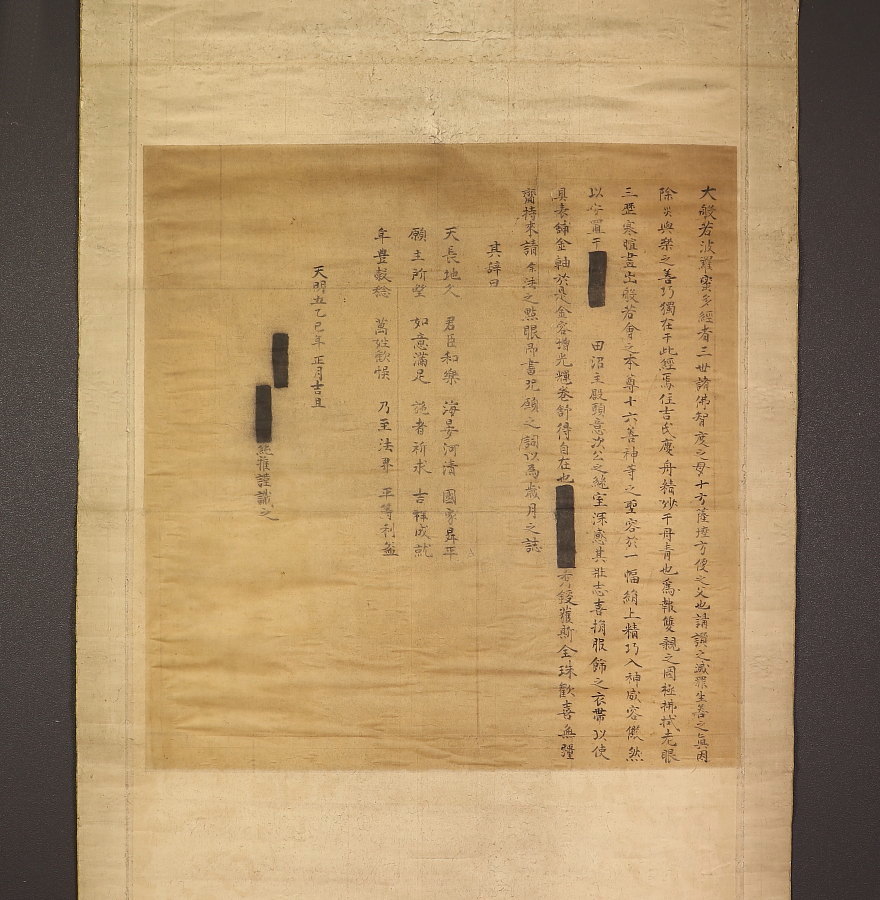 大般若波羅蜜多經者三世諸佛智度之母十方薩埵方便之父也講讃之滅罪生善之眞因
除災與樂之善巧獨在于此經焉住吉氏慶舟精妙于丹青也爲報雙親之罔極拂拭老眼
三歴寒暄畫出般若會之本尊十六善神等之聖容於一幅絹上精巧入神威容儼然
以安置于 田沼主殿頭意次公之純室深感其壯志喜捐服飾之衣帶以使
具表鋪金軸於是金容增光輝卷舒得自在也 秀鋑獲斯全珠歡喜無彊
齎持來請余法之點眼即書咒願之詞以爲歳月之誌
其辞曰
天長地久 君臣和樂 海晏河清 國家昇平
願主所望 如意滿足 施者祈求 吉祥成就
年豊穀稔 萬姓歓娯 乃至法界 平等利益
天明五乙巳年 正月吉旦
純雅謹識之